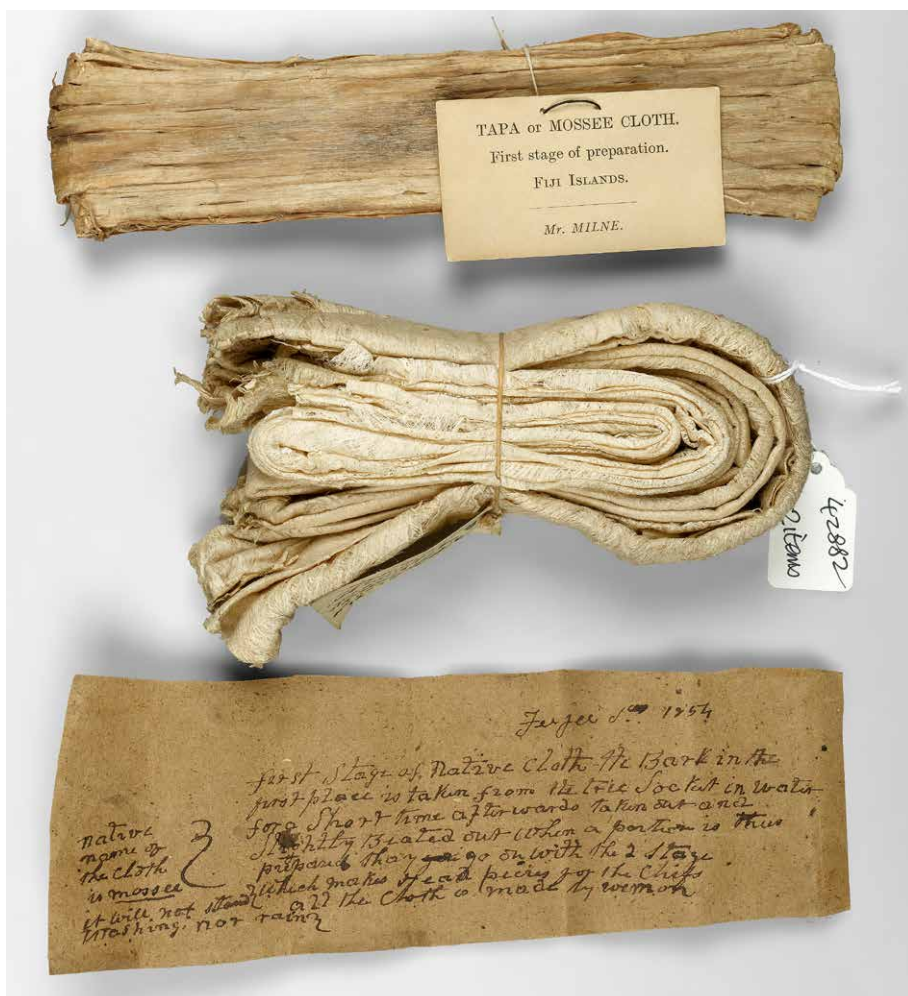 TAPA or MOSSEE CLOTH.
First stage of preparation.
FIJI ISLANDS.
Mr. MILNE.
42882
2 items
Feejee 1854
first Stage of Native Cloth the Bark in the
first place is taken from the tree Socket in water
for a Short time afterwards taken out and
Slightly Beated out When a portion is thus
prepared thay go on with the 2 Stage
which makes Head peices for the Chiefs
all the Cloth is made by wemon
native
name of
the Cloth
is mossee
it will not stand
Washing nor rain